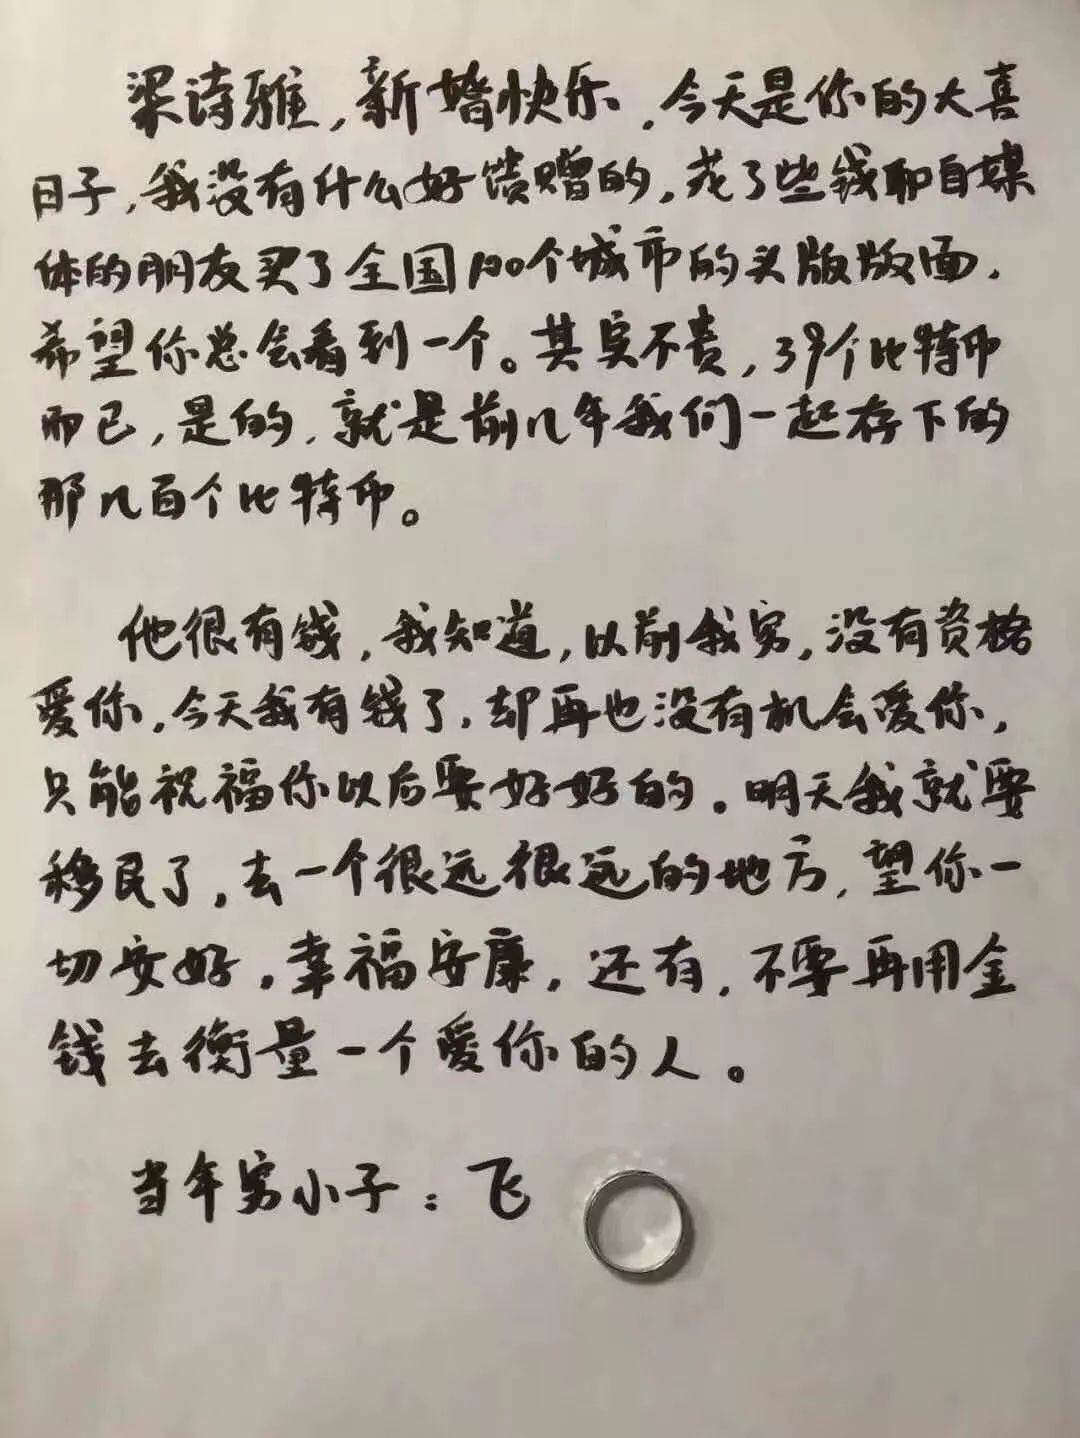 梁诗雅,新婚快乐,今天是你的大喜
日子,我没有什么好馈赠的,花了些钱和自媒
体的朋友买了全国100个城市的头版版面,
希望你总会看到一个。其实不贵,39个比特币
而已,是的,就是前几年我们一起存下的
那几百个比特币。
他很有钱,我知道,以前我穷,没有资格
爱你,今天我有钱了,却再也没有机会爱你,
只能祝福你以后要好好的。明天我就要
移民了,去一个很远很远的地方,望你一
切安好,幸福安康,还有,不要再用金
钱去衡量一个爱你的人。
当年穷小子:飞